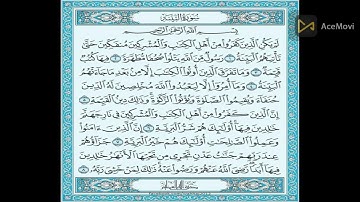 AceMovi
سُورَةُ البَيِّنَةِ
بِسْمِ اللَّهِ الرَّحْمَٰنِ الرَّحِيمِ
لَمْ يَكُنِ الَّذِينَ كَفَرُوا مِنْ أَهْلِ الْكِتَابِ وَالْمُشْرِكِينَ مُنفَكِّينَ حَتَّىٰ
تَأْتِيَهُمُ الْبَيِّنَةُ ١ رَسُولٌ مِّنَ اللَّهِ يَتْلُو صُحُفًا مُّطَهَّرَةً ٢ فِيهَا كُتُبٌ
قَيِّمَةٌ ٣ وَمَا تَفَرَّقَ الَّذِينَ أُوتُوا الْكِتَابَ إِلَّا مِن بَعْدِ مَا جَاءَتْهُمُ
الْبَيِّنَةُ ٤ وَمَا أُمِرُوا إِلَّا لِيَعْبُدُوا اللَّهَ مُخْلِصِينَ لَهُ الدِّينَ
حُنَفَاءَ وَيُقِيمُوا الصَّلَاةَ وَيُؤْتُوا الزَّكَاةَ وَذَٰلِكَ دِينُ الْقَيِّمَةِ ٥
إِنَّ الَّذِينَ كَفَرُوا مِنْ أَهْلِ الْكِتَابِ وَالْمُشْرِكِينَ فِي نَارِ جَهَنَّمَ
خَالِدِينَ فِيهَا أُولَٰئِكَ هُمْ شَرُّ الْبَرِيَّةِ ٦ إِنَّ الَّذِينَ آمَنُوا
وَعَمِلُوا الصَّالِحَاتِ أُولَٰئِكَ هُمْ خَيْرُ الْبَرِيَّةِ ٧ جَزَاؤُهُمْ
عِندَ رَبِّهِمْ جَنَّاتُ عَدْنٍ تَجْرِي مِن تَحْتِهَا الْأَنْهَارُ خَالِدِينَ
فِيهَا أَبَدًا رَّضِيَ اللَّهُ عَنْهُمْ وَرَضُوا عَنْهُ ذَٰلِكَ لِمَنْ خَشِيَ رَبَّهُ ٨